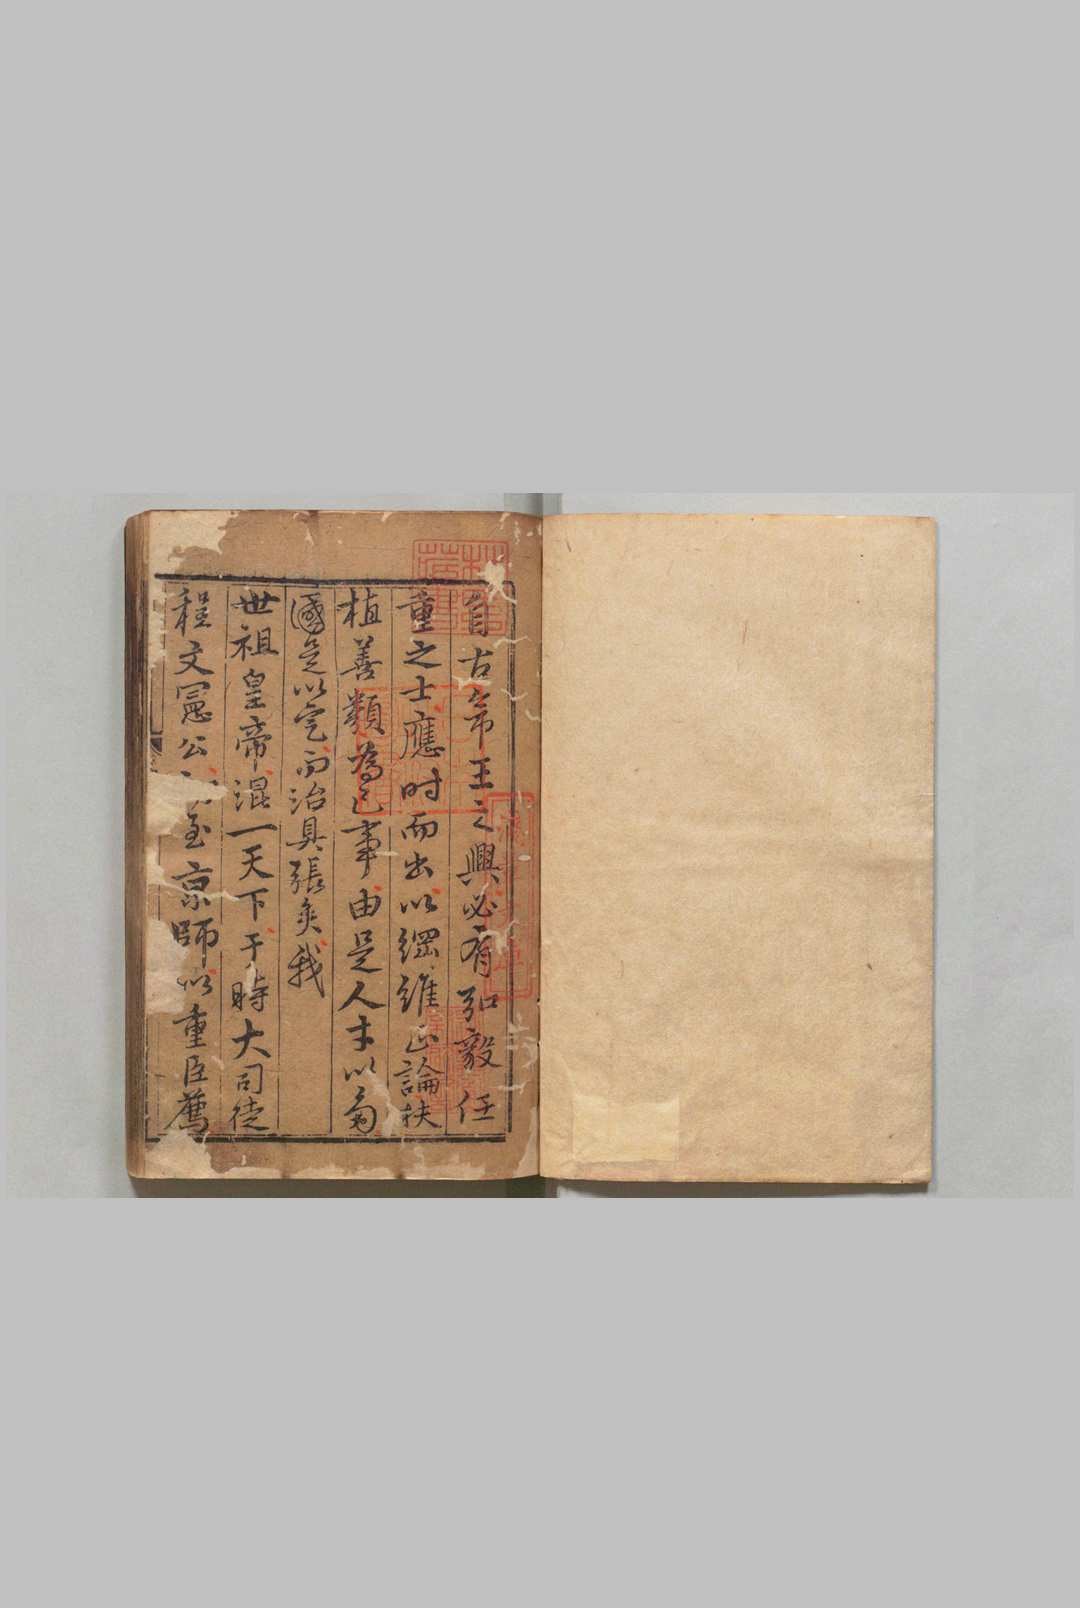 自古帝王之興必有弘毅任
重之士應时而出以綱維正論扶
植善類為己事由是人才以爲
國是以定而治具張矣我
世祖皇帝混一天下于時大司徒
程文憲公 至京師以重臣薦